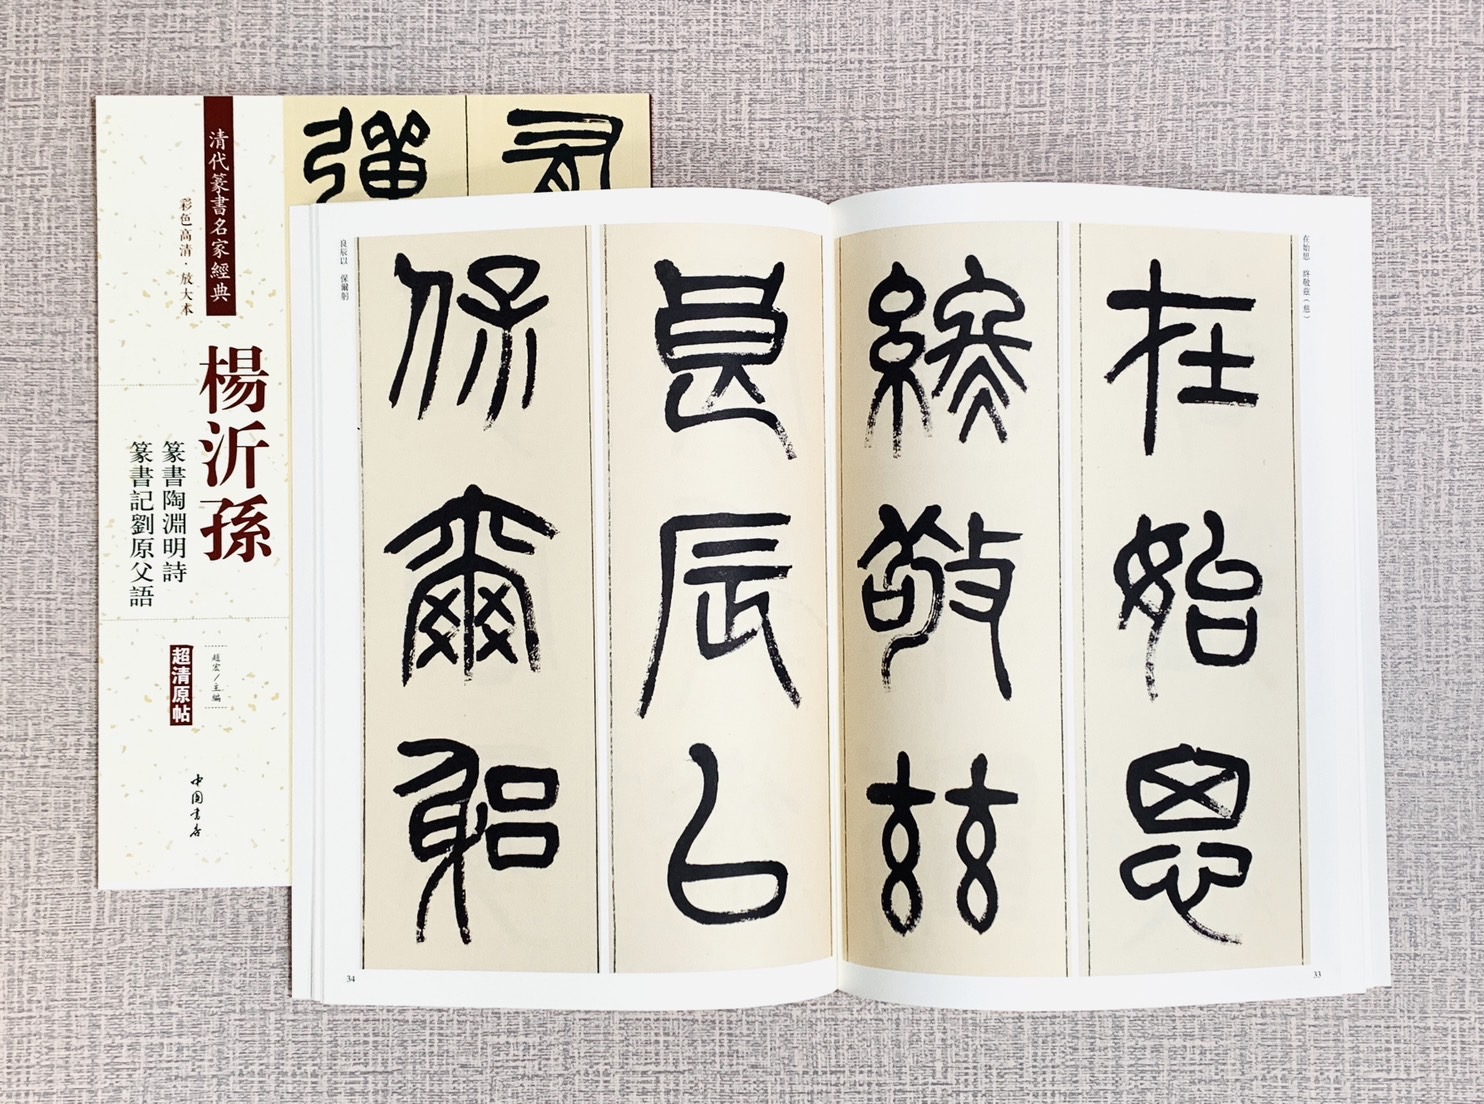 清代篆書名家經典
彩色高清·放大本
楊沂孫
篆書陶淵明詩
篆書記劉原父語
趙宏/主編
超清原帖
中国書店
在始思 終敬茲（慈）
在始思
終敬茲
33
良辰以 保爾躬
良辰以
保爾躬
34